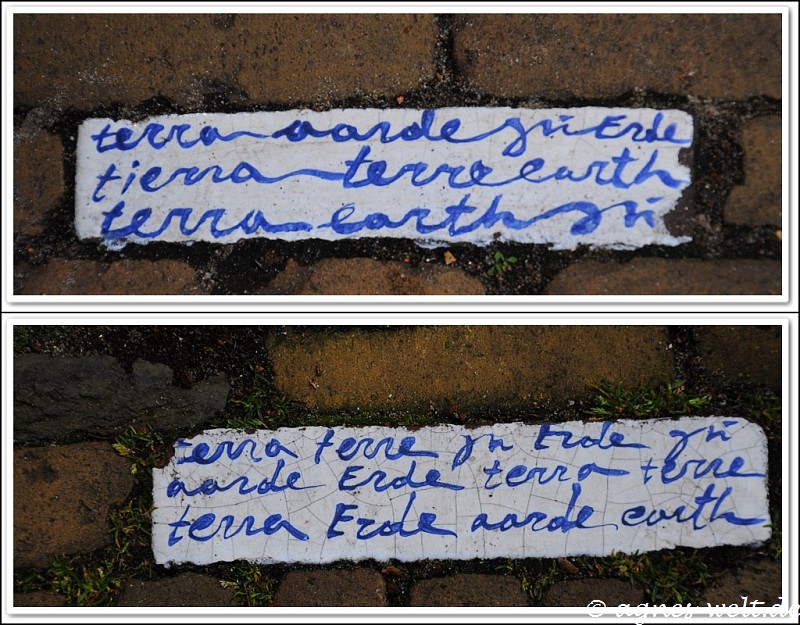 terra aarde γῆ Erde
tierra terre earth
terra earth γῆ
terra terre γῆ Erde γῆ
aarde Erde terra terre
terra Erde aarde earth
© agnes-welt.de